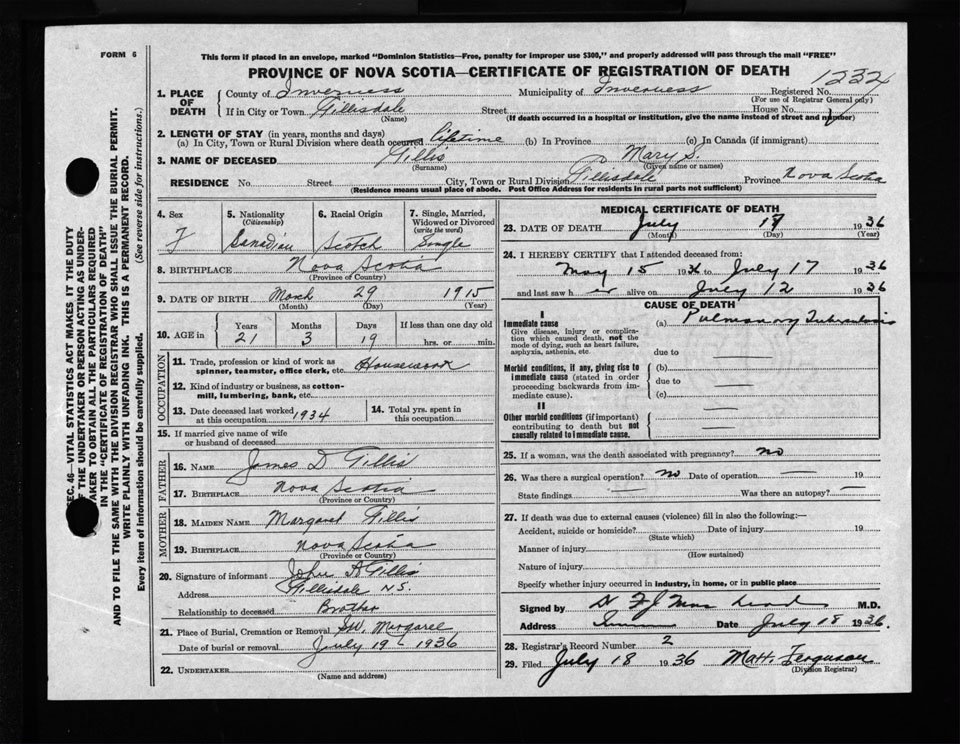 FORM 6
This form if placed in an envelope, marked "Dominion Statistics—Free, penalty for improper use $300," and properly addressed will pass through the mail "FREE"
PROVINCE OF NOVA SCOTIA—CERTIFICATE OF REGISTRATION OF DEATH
1232
1. PLACE OF DEATH
County of Inverness Municipality of Inverness Registered No.
(For use of Registrar General only)
If in City or Town Gillisdale Street House No.
(Name) (If death occurred in a hospital or institution, give the name instead of street and number)
2. LENGTH OF STAY (in years, months and days)
(a) In City, Town or Rural Division where death occurred lifetime (b) In Province (c) In Canada (if immigrant)
3. NAME OF DECEASED Gillis Mary S.
(Surname) (Given name or names)
RESIDENCE No. Street City, Town or Rural Division Gillisdale Province Nova Scotia
(Residence means usual place of abode. Post Office Address for residents in rural parts not sufficient)
4. Sex F
5. Nationality (Citizenship) Canadian
6. Racial Origin Scotch
7. Single, Married, Widowed or Divorced (write the word) Single
8. BIRTHPLACE Nova Scotia
(Province or Country)
9. DATE OF BIRTH March 29 1915
(Month) (Day) (Year)
10. AGE in Years Months Days If less than one day old
21 3 19 hrs. or min.
OCCUPATION
11. Trade, profession or kind of work as spinner, teamster, office clerk, etc. Housework
12. Kind of industry or business, as cotton-mill, lumbering, bank, etc.
13. Date deceased last worked at this occupation 1934
14. Total yrs. spent in this occupation
15. If married give name of wife or husband of deceased
FATHER
16. NAME James D Gillis
17. BIRTHPLACE Nova Scotia
(Province or Country)
MOTHER
18. MAIDEN NAME Margaret Gillis
19. BIRTHPLACE Nova Scotia
(Province or Country)
20. Signature of informant John A Gillis
Address Gillisdale N.S.
Relationship to deceased Brother
21. Place of Burial, Cremation or Removal S.W. Margaree
Date of burial or removal July 19 1936
22. UNDERTAKER
(Name and address)
MEDICAL CERTIFICATE OF DEATH
23. DATE OF DEATH July 17 1936
(Month) (Day) (Year)
24. I HEREBY CERTIFY that I attended deceased from:
May 15 1936 to July 17 1936
and last saw h er alive on July 12 1936
CAUSE OF DEATH
I
Immediate cause (a) Pulmonary Tuberculosis
Give disease, injury or complication which caused death, not the mode of dying, such as heart failure, asphyxia, asthenia, etc.
due to
Morbid conditions, if any, giving rise to immediate cause (stated in order proceeding backwards from immediate cause).
(b)
due to
(c)
II
Other morbid conditions (if important) contributing to death but not causally related to immediate cause.
25. If a woman, was the death associated with pregnancy? no
26. Was there a surgical operation? no Date of operation 19
State findings Was there an autopsy?
27. If death was due to external causes (violence) fill in also the following:—
Accident, suicide or homicide? Date of injury 19
(State which)
Manner of injury
(How sustained)
Nature of injury
Specify whether injury occurred in industry, in home, or in public place
Signed by M.D.
Address Date July 18 1936.
28. Registrar's Record Number 2
29. Filed July 18 1936 Matt. Ferguson
(Division Registrar)
SEC. 46—VITAL STATISTICS ACT MAKES IT THE DUTY
OF THE UNDERTAKER OR PERSON ACTING AS UNDER-
TAKER TO OBTAIN ALL THE PARTICULARS REQUIRED
IN THE "CERTIFICATE OF REGISTRATION OF DEATH"
AND TO FILE THE SAME WITH THE DIVISION REGISTRAR WHO SHALL ISSUE THE BURIAL PERMIT.
WRITE PLAINLY WITH UNFADING INK. THIS IS A PERMANENT RECORD.
Every item of information should be carefully supplied. (See reverse side for instructions.)